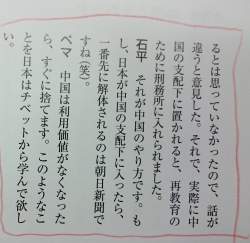 るとは思っていなかったので、話が
違うと意見した。それで、実際に中
国の支配下に置かれると、再教育の
ために刑務所に入れられました。
石平　それが中国のやり方です。も
し、日本が中国の支配下に入ったら、
一番先に解体されるのは朝日新聞で
すね(笑)。
ペマ　中国は利用価値がなくなった
ら、すぐに捨てます。このようなこ
とを日本はチベットから学んで欲し
い。